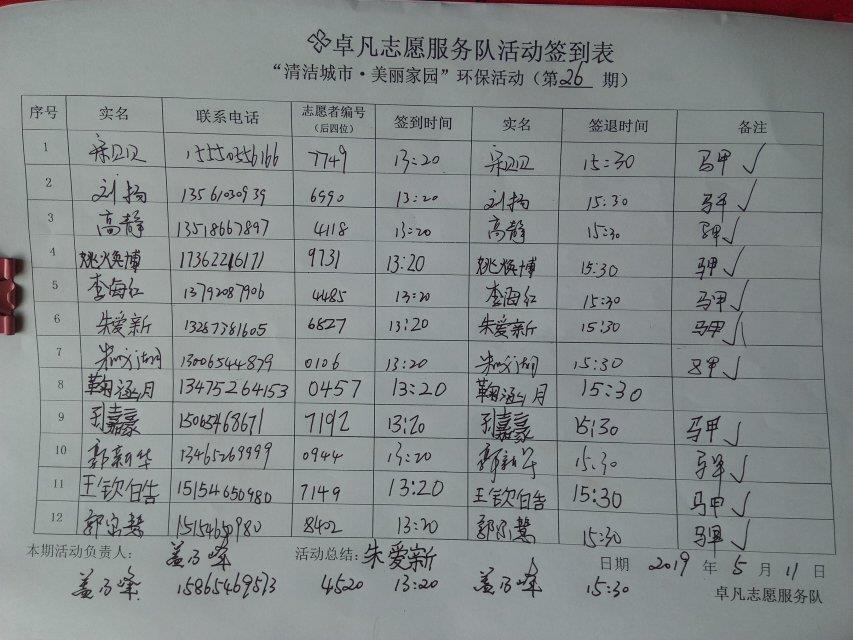 卓凡志愿服务队活动签到表
“清洁城市·美丽家园”环保活动（第26期）
序号 实名 联系电话 志愿者编号（后四位） 签到时间 实名 签退时间 备注
1 宋卫卫 15550356166 7749 13:20 宋卫卫 15:30 马甲 ✓
2 刘扬 13561030939 6990 13:20 刘扬 15:30 马甲 ✓
3 高静 13518667897 4118 13:20 高静 15:30 马甲 ✓
4 姚焕博 17362216171 9731 13:20 姚焕博 15:30 马甲 ✓
5 李海红 13792087906 4485 13:20 李海红 15:30 马甲 ✓
6 朱爱新 13287381605 6827 13:20 朱爱新 15:30 马甲 ✓
7 13006544879 0106 13:20 15:30 马甲 ✓
8 鞠涵月 13475264153 0457 13:20 鞠涵月 15:30
9 刘嘉豪 15065468671 7192 13:20 刘嘉豪 15:30 马甲 ✓
10 郭新华 13465269999 0944 13:20 郭新华 15:30 马甲 ✓
11 王钦浩 15154650980 7149 13:20 王钦浩 15:30 马甲 ✓
12 15154650980 8402 13:20 15:30 马甲 ✓
本期活动负责人： 盖乃峰 活动总结：朱爱新 日期 2019 年 5 月 11 日
盖乃峰 15865469513 4520 13:20 盖乃峰 15:30 卓凡志愿服务队